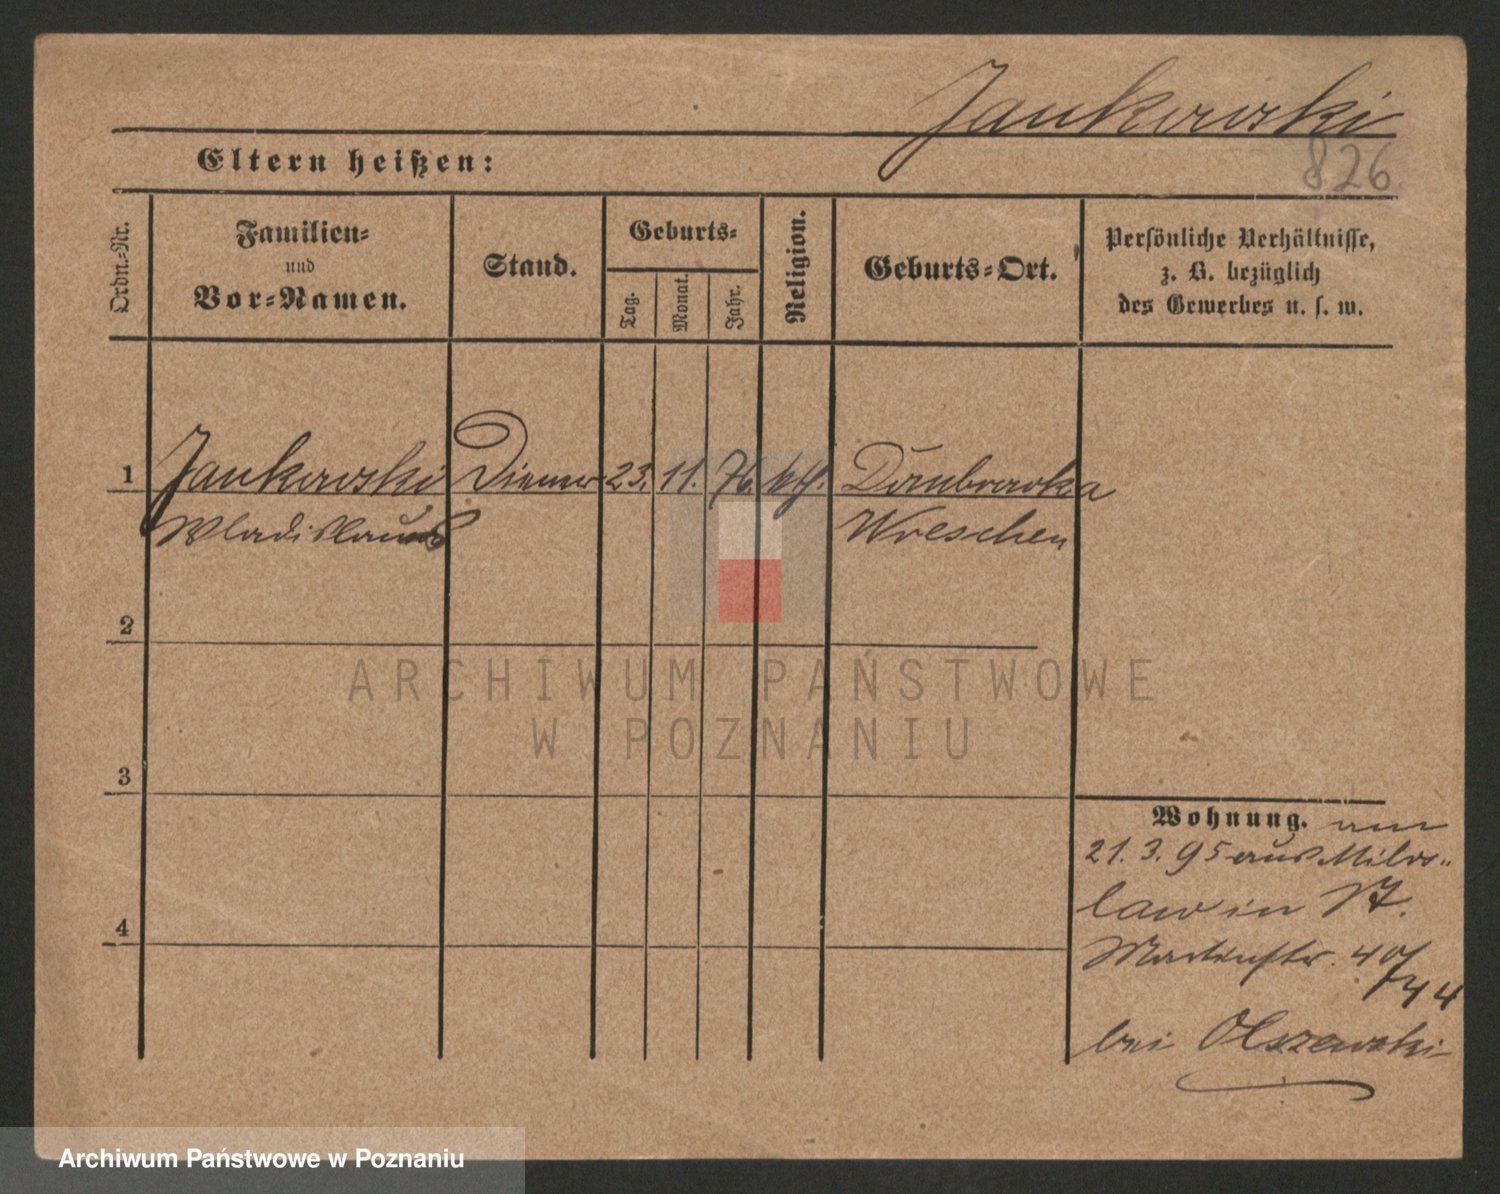 Jankowski
826
Eltern heißen:
Ordn.-Nr.
Familien-
und
Vor-Namen.
Stand.
Geburts-
Tag.
Monat.
Jahr.
Religion.
Geburts-Ort.
Persönliche Verhältnisse,
z. B. bezüglich
des Gewerbes u. s. w.
1 Jankowski Diener 23. 11. 76. kth. Dombrowka
Wladislaus Wreschen
2
3
4
Wohnung. am
21. 3. 95 aus Milos-
law in St.
Martinstr. 40/
44
bei Olszewski
ARCHIWUM PAŃSTWOWE
W POZNANIU
Archiwum Państwowe w Poznaniu